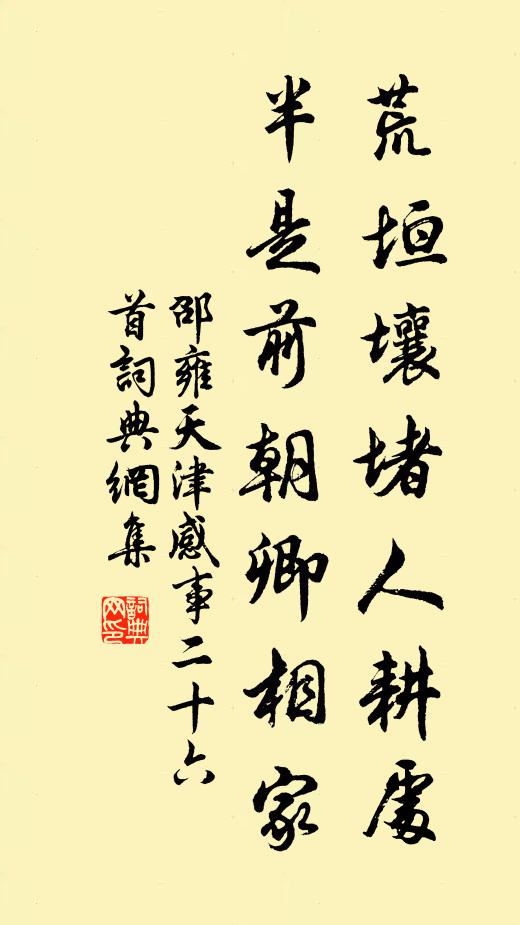 荒垣壞堵人耕處
半是前朝卿相家
邵雍天津感事二十六
首詞典網集
詞典網印